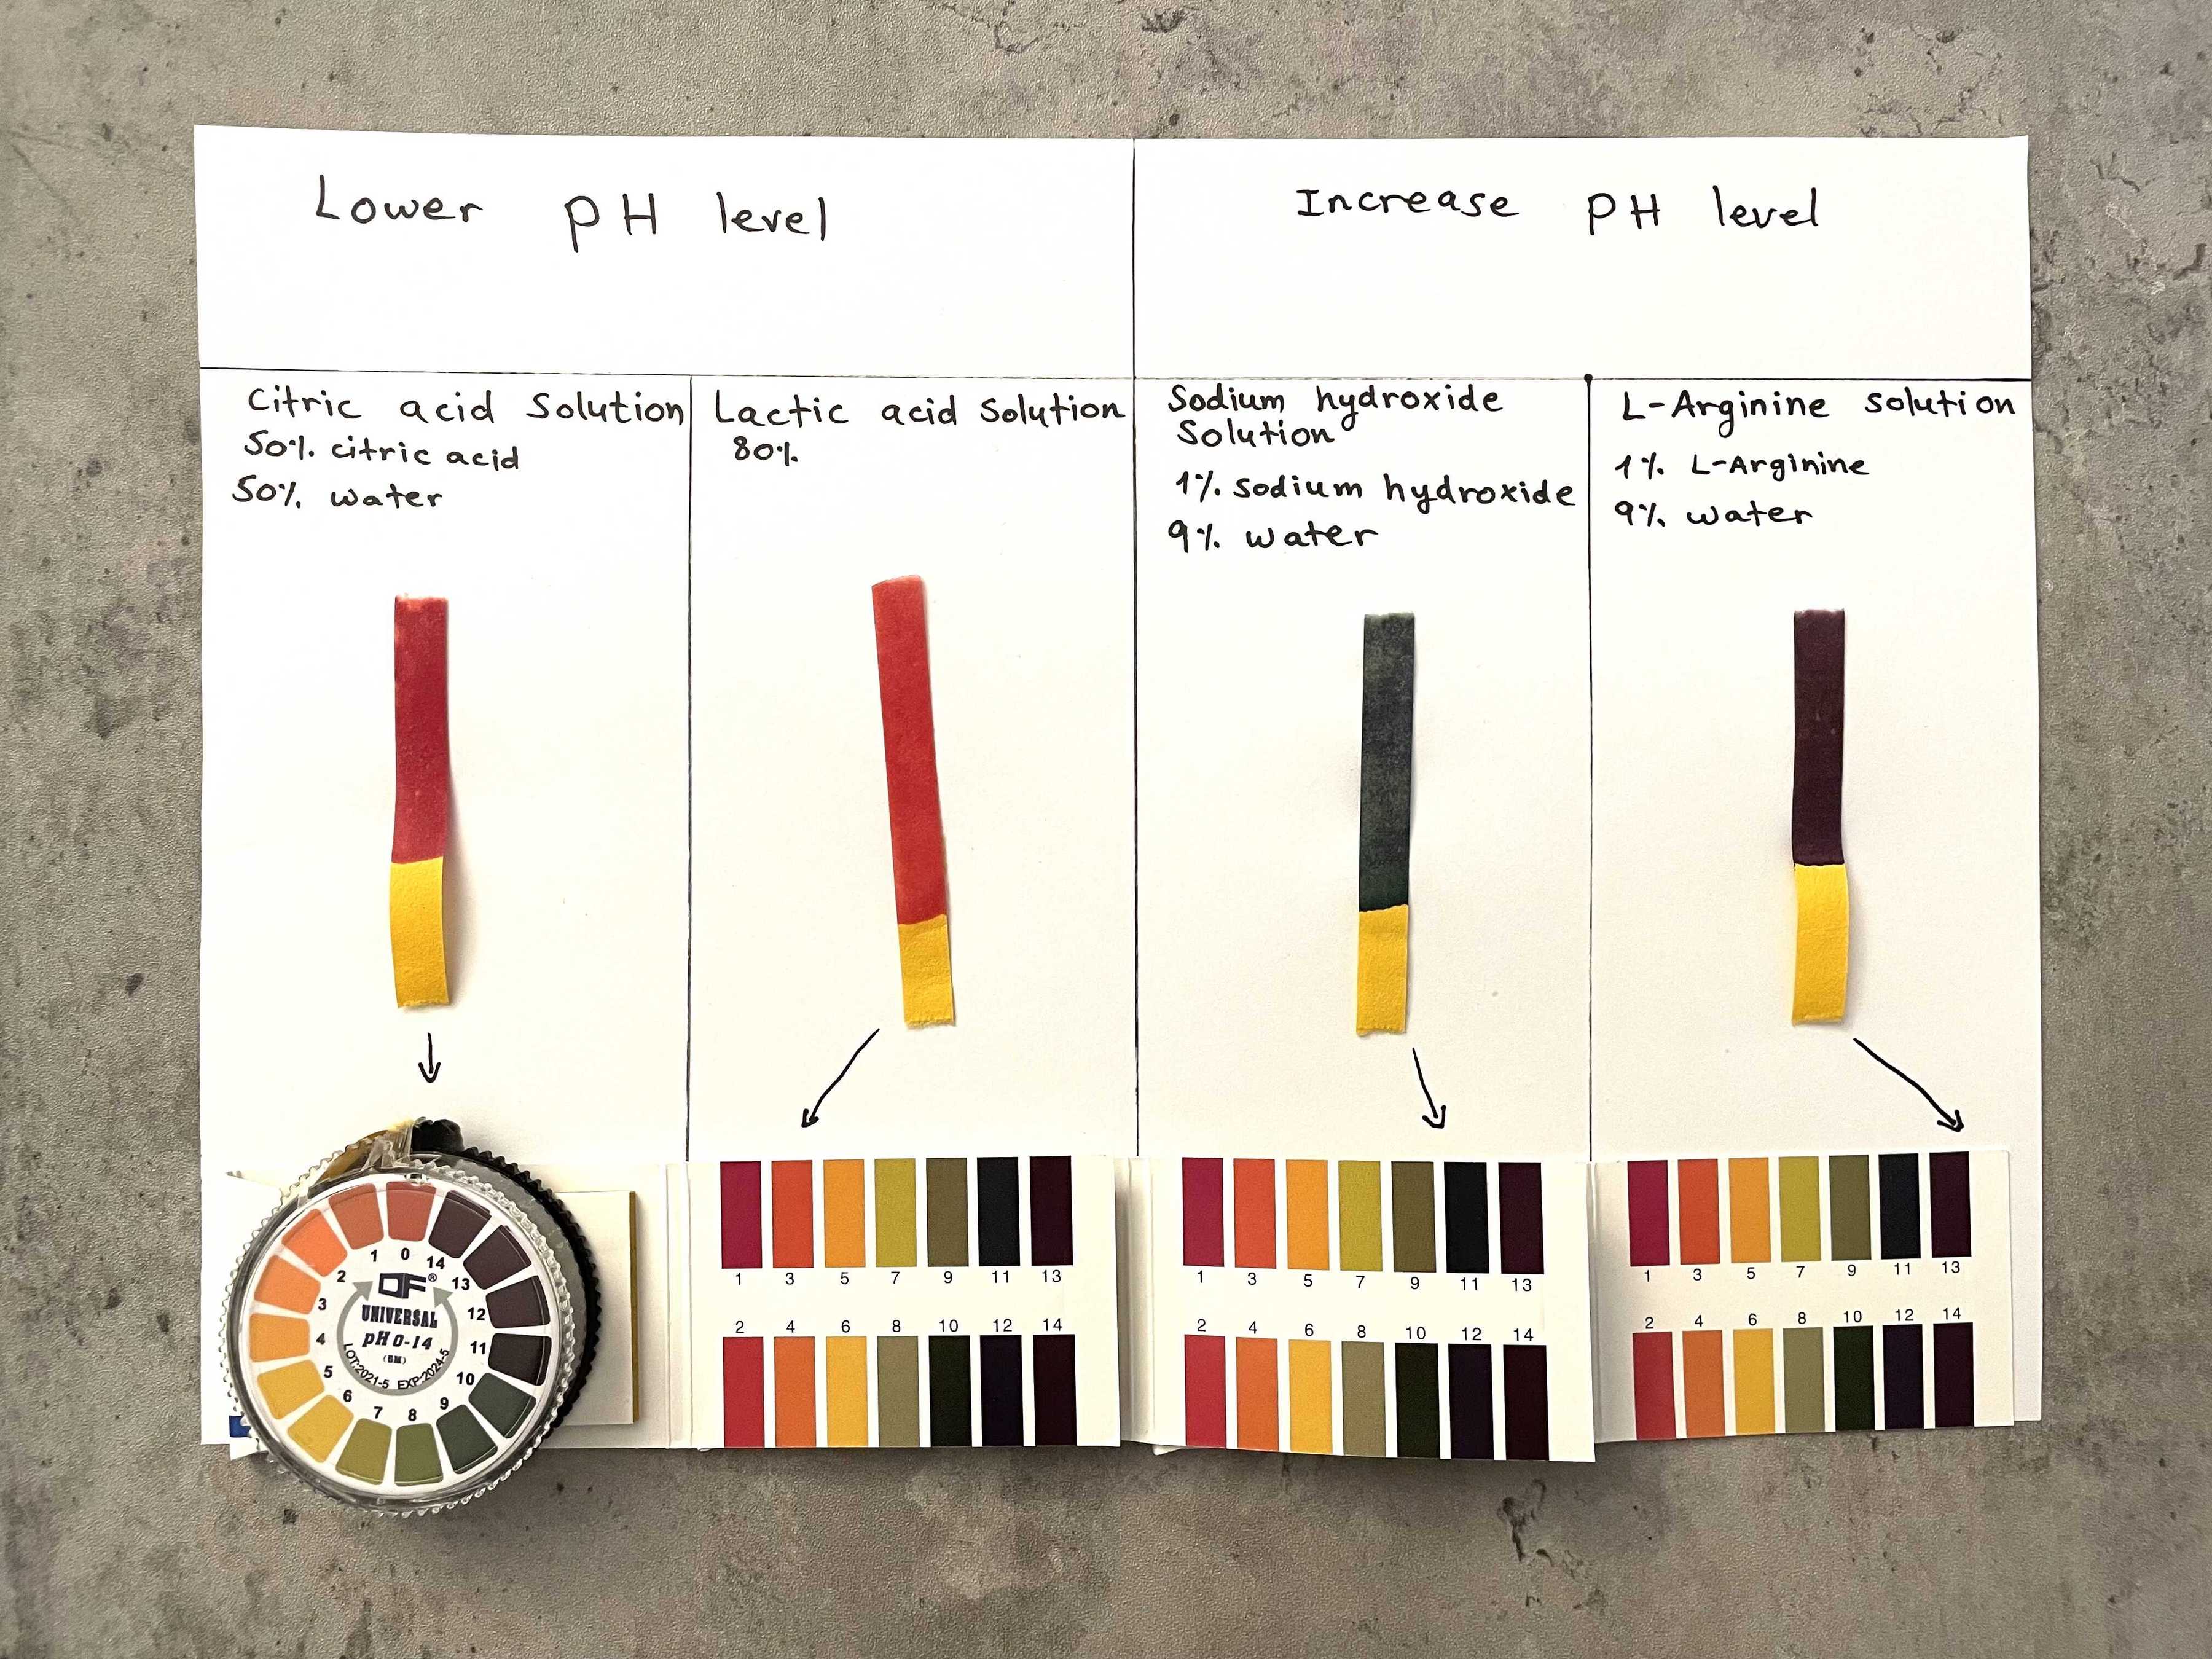 Lower pH level
Increase PH level
Citric acid Solution
50% citric acid
50% water
Lactic acid solution
80%
Sodium hydroxide
Solution
1% sodium hydroxide
9% water
L-Arginine solution
1% L-Arginine
9% water
0
1
2
3
4
5
6
7
8
9
10
11
12
13
14
QF®
UNIVERSAL
pH 0-14
(5M)
LOT:2021-5 EXP:2024-5
1 3 5 7 9 11 13
2 4 6 8 10 12 14
1 3 5 7 9 11 13
2 4 6 8 10 12 14
1 3 5 7 9 11 13
2 4 6 8 10 12 14